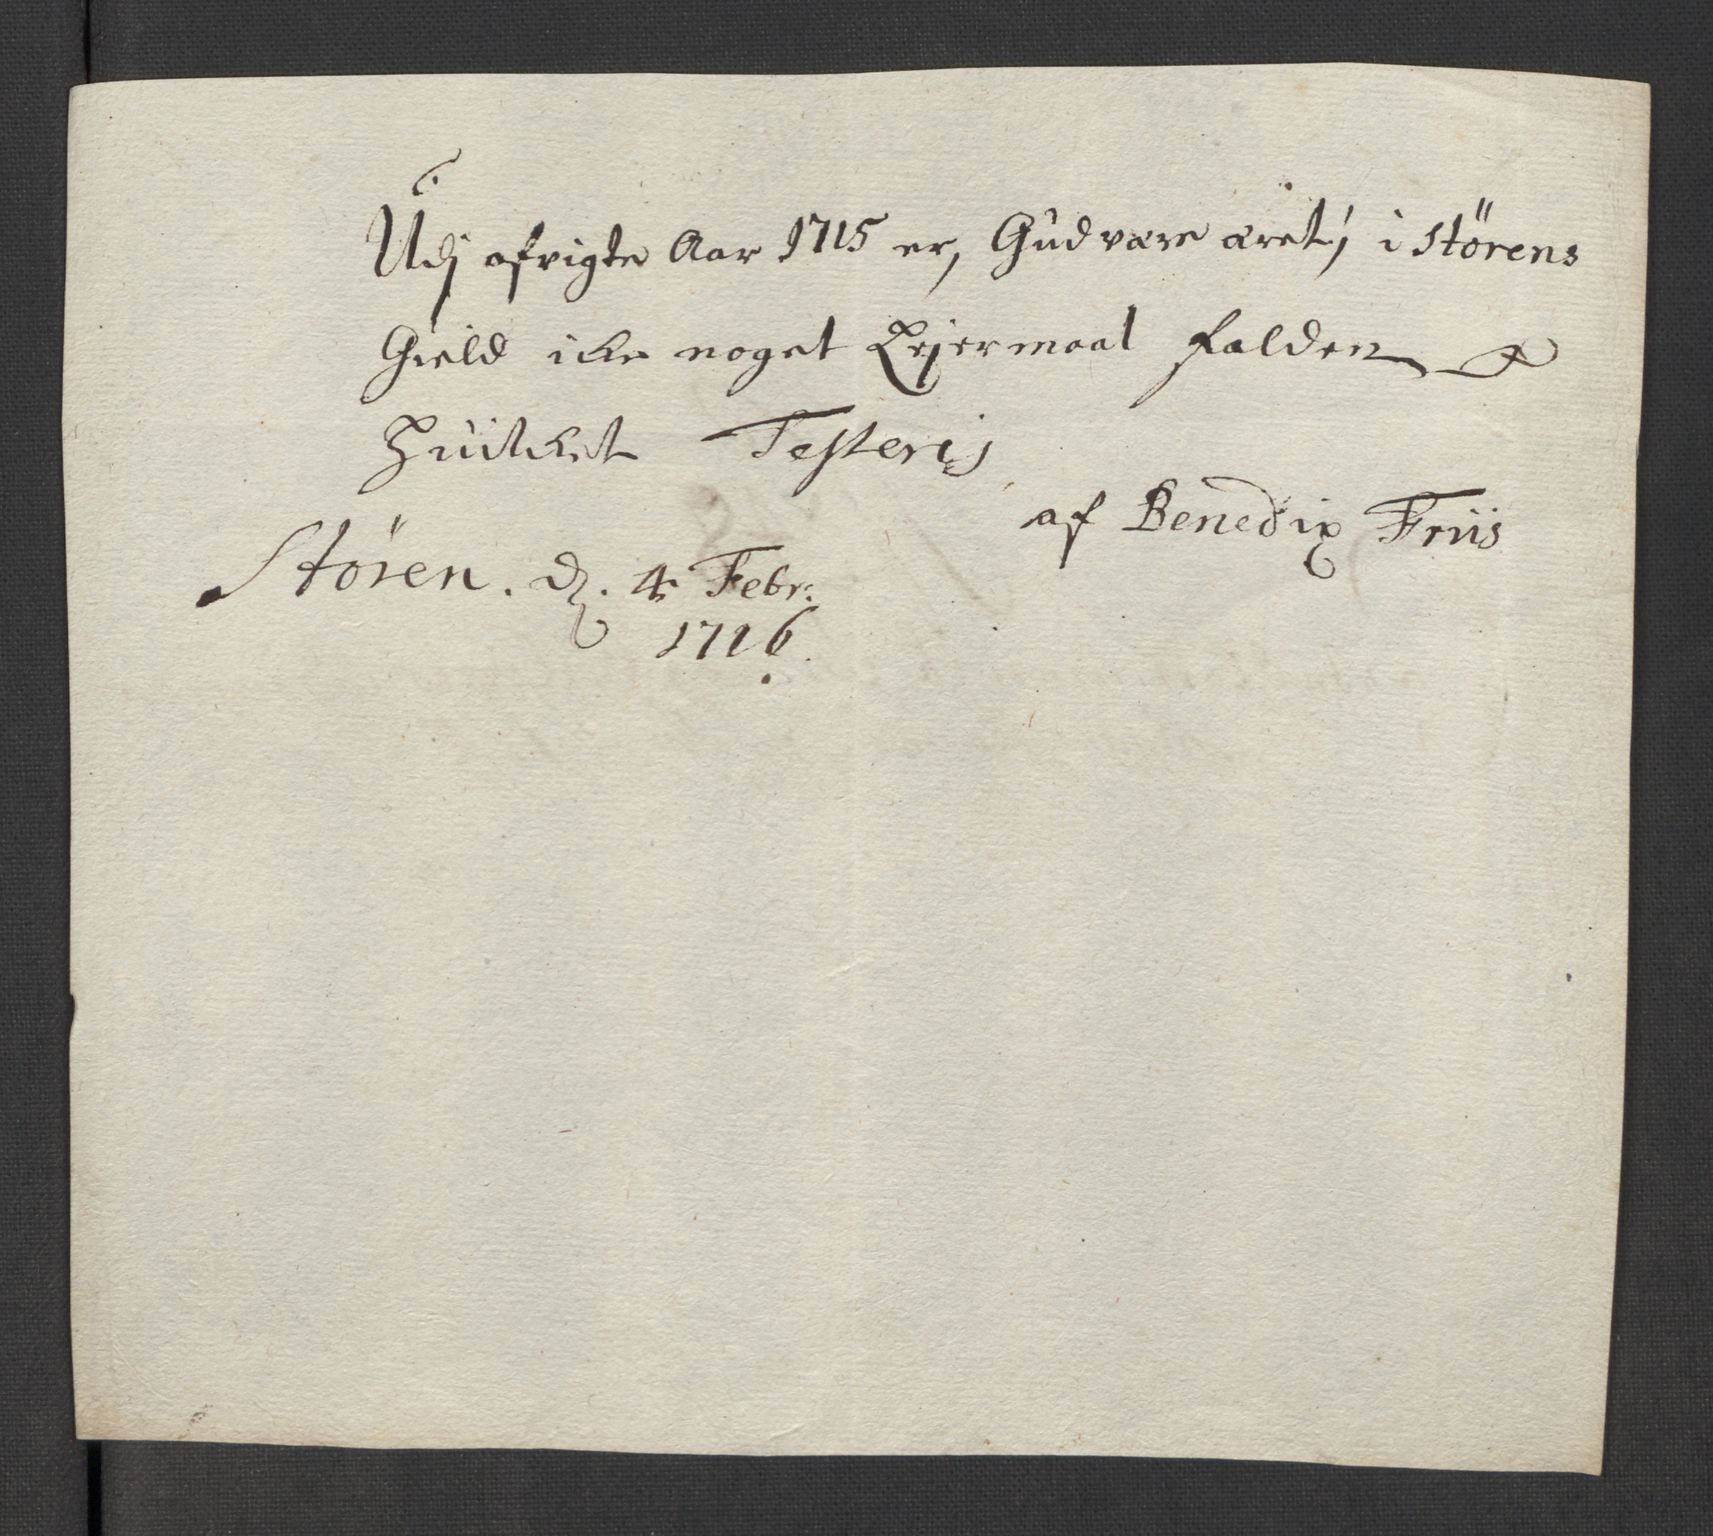 Udj afvigte Aar 1715 er, Gud være æret, i Störens
Gield icke noget Lejermaal falden
Huilcket Testeris
af Benedix Friis
Stören. d. 4 Febr:
1716.